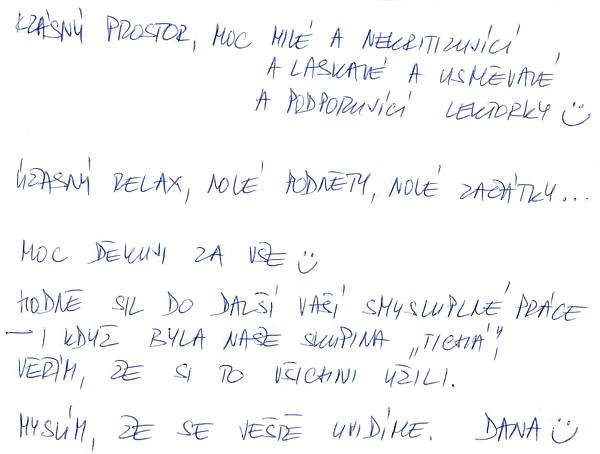 KRÁSNÝ PROSTOR, MOC MILÉ A NEKRITIZUJÍCÍ
A LASKAVÉ A USMĚVAVÉ
A PODPORUJÍCÍ LEKTORKY ☺
ÚŽASNÝ RELAX, NOVÉ PODNĚTY, NOVÉ ZAČÁTKY...
MOC DĚKUJI ZA VŠE ☺
HODNĚ SIL DO DALŠÍ VAŠÍ SMYSLUPLNÉ PRÁCE
– I KDYŽ BYLA NAŠE SKUPINA „TICHÁ",
VĚŘÍM, ŽE SI TO VŠICHNI UŽILI.
MYSLÍM, ŽE SE JEŠTĚ UVIDÍME. DANA ☺